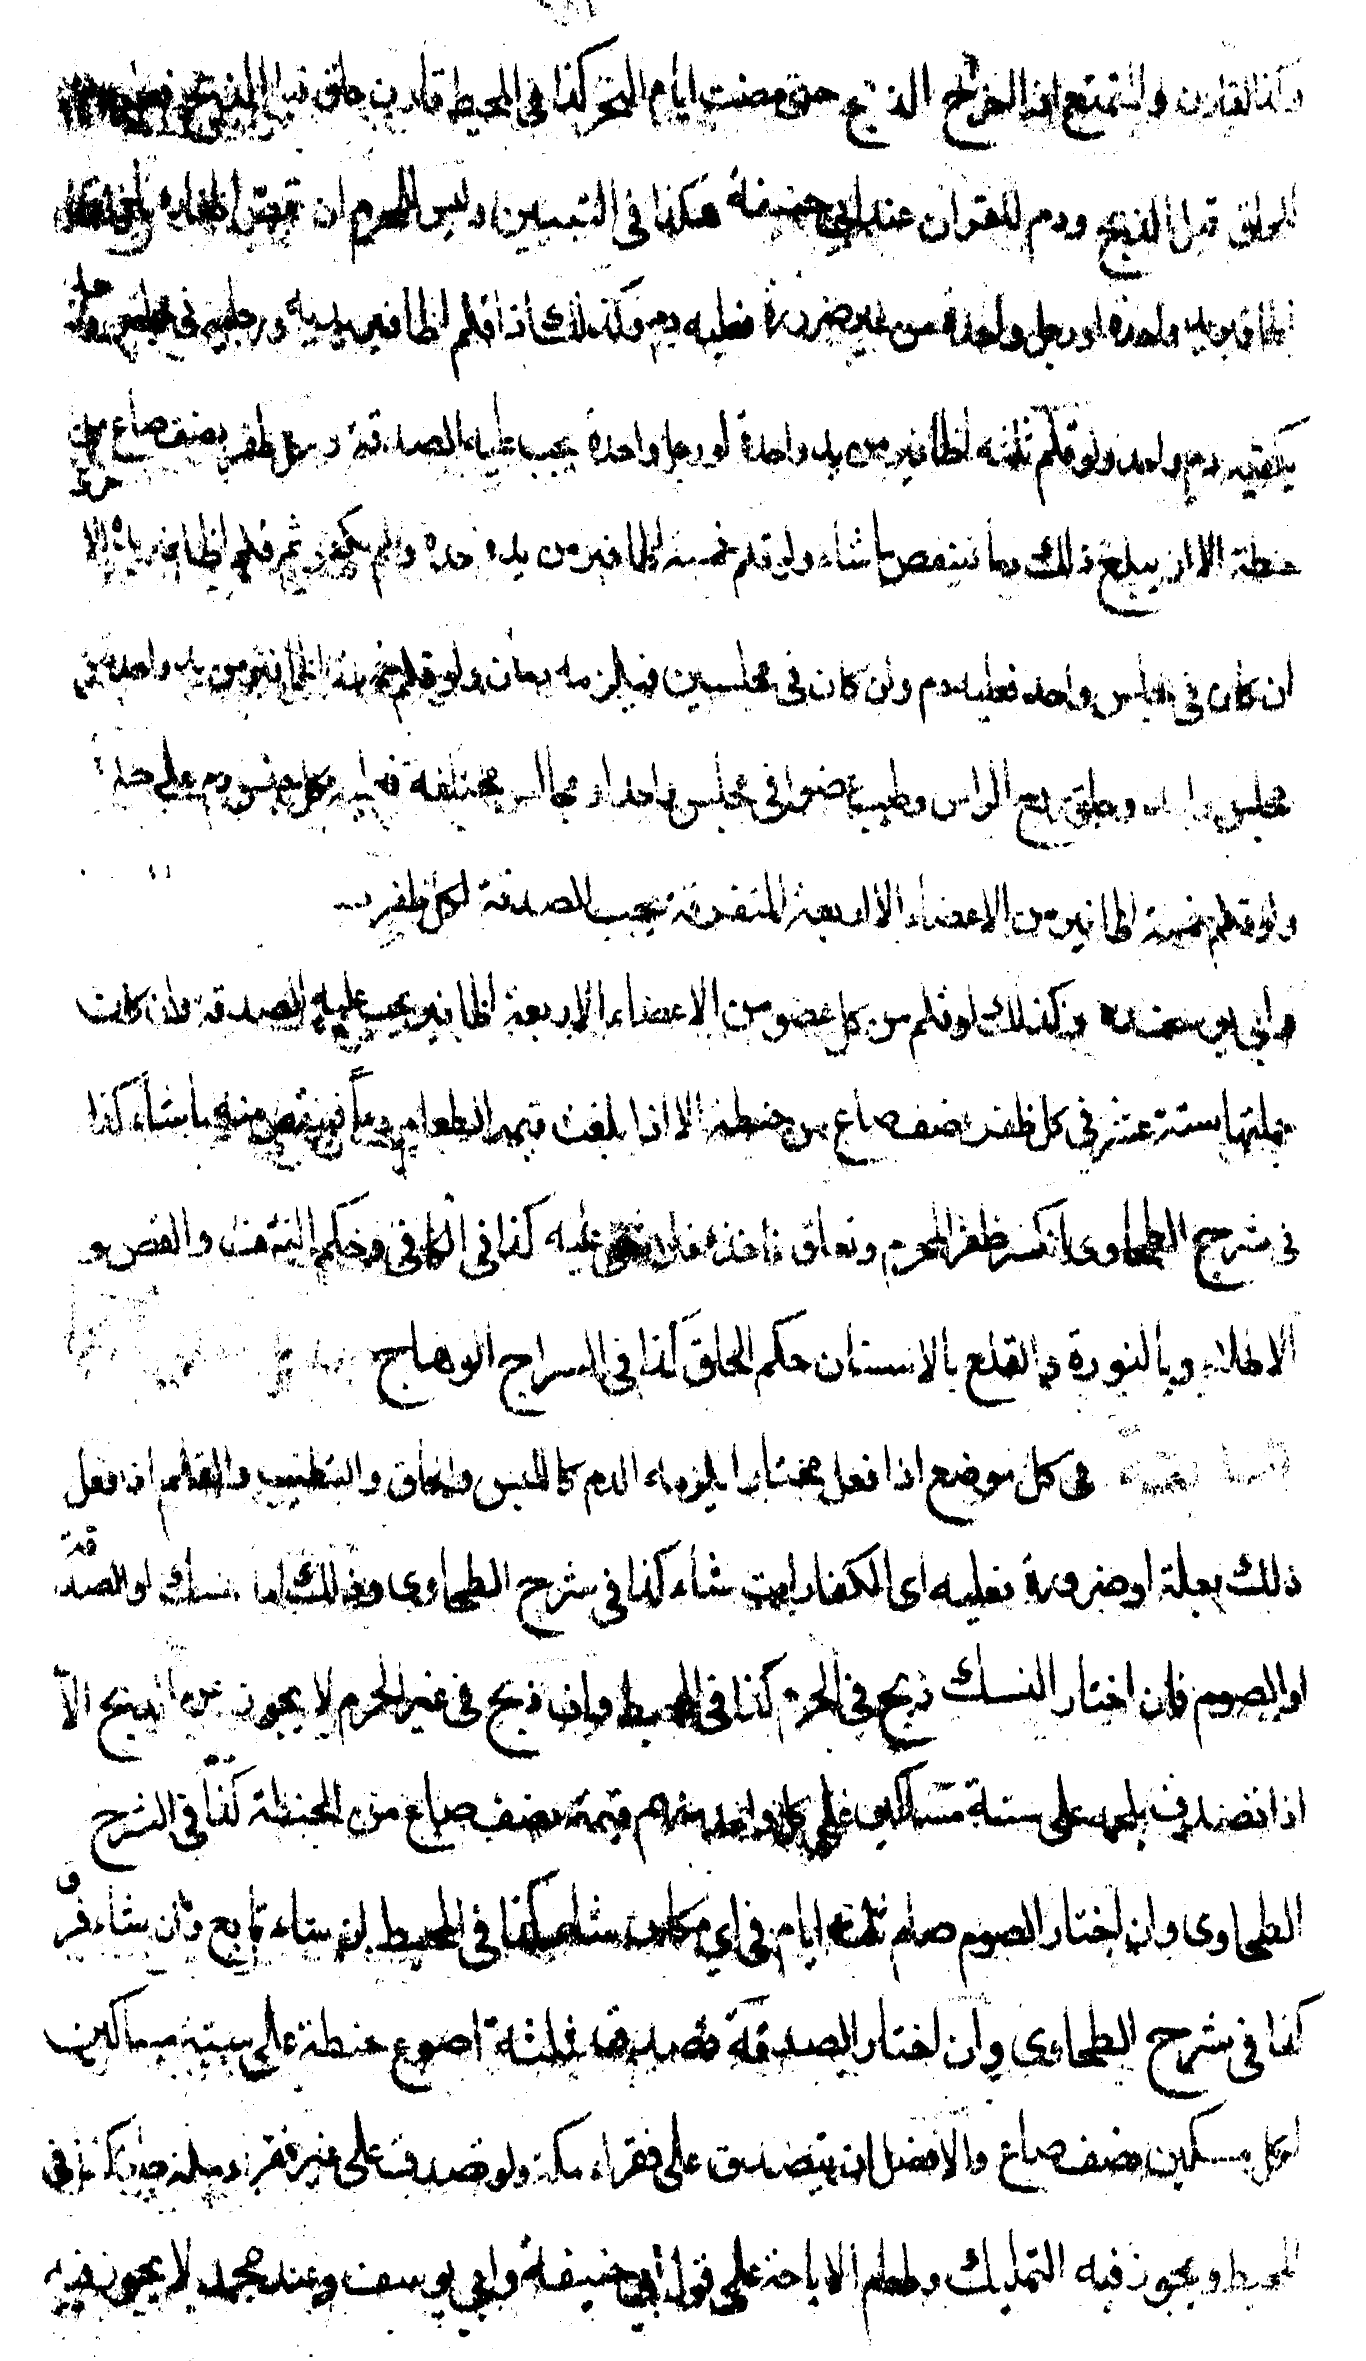 وكذا القارن والمتمتع اذا اخر الذبح حتى مضت ايام النحر كذا فى المحيط قارن حلق قبل الذبح فعليه
للحلق قبل الذبح ودم للقران عند ابي حنيفة هكذا فى التبيين وليس للمحرم ان يقص اظفاره
اظافير يد واحدة او رجل واحدة من غير ضرورة فعليه دم وكذلك اذا قلم اظافير يديه ورجليه فى مجلس واحد
يكفيه دم واحد ولو قلم ثلثه اظافير من يد واحدة او رجل واحدة يجب عليه الصدقة لكل ظفر نصف صاع من
حنطة الا ان يبلغ ذلك دما فينقص ما شاء ولو قلم خمسة اظافير من يد واحدة ولم يكفر ثم قلم اظافير
ان كان فى مجلس واحد فعليه دم وان كان فى مجلسين فيلزمه دمان ولو قلم خمسة اظافير من يد واحدة فى
مجلس واحد وحلق ربع الراس وطيب عضوا فى مجلس واحد او مجالس مختلفة فعليه لكل جنس دم على حدة
ولو قلم خمسة اظافير من الاعضاء الاربعة المتفرقة يجب الصدقة لكل ظفر
وابي يوسف وكذلك لو قلم من كل عضو من الاعضاء الاربعة اظافير يجب عليه الصدقة وان كانت
جملتها ستة عشر فى كل ظفر نصف صاع من حنطة الا اذا بلغت قيمة الطعام دماً فينقص منه ما شاء كذا
فى شرح الطحاوى انكسر ظفر المحرم وتعلق فاخذه فلا شئ عليه كذا فى الكافى وحكم النتف والقص و
الاطلاء وبالنورة والقلع بالاسنان حكم الحلق كذا فى السراج الوهاج
فى كل موضع اذا فعل مختارا يلزمه الدم كاللبس والحلق والتطيب والقلم اذا فعل
ذلك بعلة او ضرورة فعليه اى الكفارات شاء كذا فى شرح الطحاوى وذلك اما نسك او الصدقة
او الصوم فان اختار النسك ذبح فى الحرم كذا فى المحيط وان ذبح فى غير الحرم لا يجوز عن الذبح الا
اذا تصدق بلحمه على ستة مساكين على كل واحد منهم قيمة نصف صاع من الحنطة كذا فى الشرح
الطحاوى وان اختار الصوم صام ثلثة ايام فى اي مكان شاء كذا فى المحيط ان شاء تابع وان شاء فرق
كذا فى شرح الطحاوى وان اختار الصدقة تصدق ثلثة اصوع حنطة على ستة مساكين
لكل مسكين نصف صاع والافضل ان يتصدق على فقراء مكة ولو تصدق على غير فقراء مكة جاز كذا فى
المحيط ويجوز فيه التمليك وطعام الاباحة على قول ابي حنيفة وابي يوسف وعند محمد لا يجوز فيه